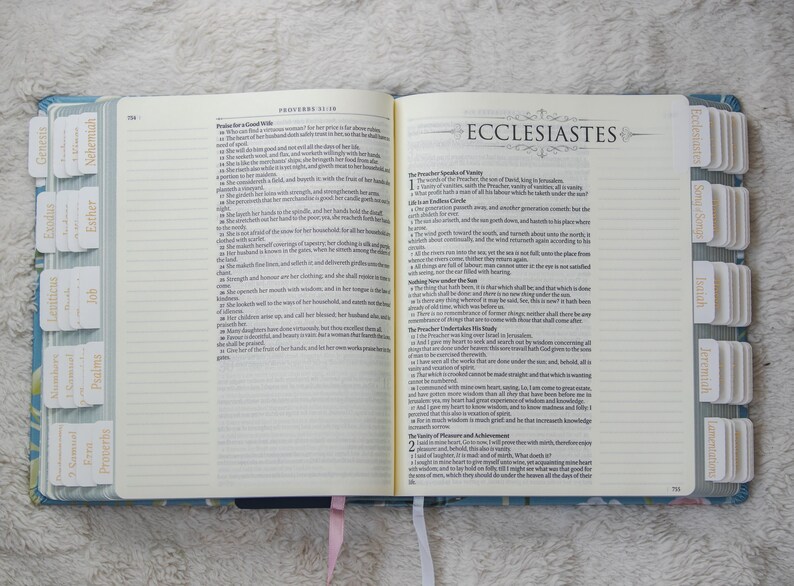 754
PROVERBS 31:10
Praise for a Good Wife
10 Who can find a virtuous woman? for her price is far above rubies.
11 The heart of her husband doth safely trust in her, so that he shall have no
need of spoil.
12 She will do him good and not evil all the days of her life.
13 She seeketh wool, and flax, and worketh willingly with her hands.
14 She is like the merchants' ships; she bringeth her food from afar.
15 She riseth also while it is yet night, and giveth meat to her household, and
a portion to her maidens.
16 She considereth a field, and buyeth it: with the fruit of her hands she
planteth a vineyard.
17 She girdeth her loins with strength, and strengtheneth her arms.
18 She perceiveth that her merchandise is good: her candle goeth not out by
night.
19 She layeth her hands to the spindle, and her hands hold the distaff.
20 She stretcheth out her hand to the poor; yea, she reacheth forth her hands
to the needy.
21 She is not afraid of the snow for her household: for all her household are
clothed with scarlet.
22 She maketh herself coverings of tapestry; her clothing is silk and purple.
23 Her husband is known in the gates, when he sitteth among the elders of
the land.
24 She maketh fine linen, and selleth it; and delivereth girdles unto the mer-
chant.
25 Strength and honour are her clothing; and she shall rejoice in time to
come.
26 She openeth her mouth with wisdom; and in her tongue is the law of
kindness.
27 She looketh well to the ways of her household, and eateth not the bread
of idleness.
28 Her children arise up, and call her blessed; her husband also, and he
praiseth her.
29 Many daughters have done virtuously, but thou excellest them all.
30 Favour is deceitful, and beauty is vain: but a woman that feareth the LORD,
she shall be praised.
31 Give her of the fruit of her hands; and let her own works praise her in the
gates.
ECCLESIASTES
The Preacher Speaks of Vanity
1 The words of the Preacher, the son of David, king in Jerusalem.
2 Vanity of vanities, saith the Preacher, vanity of vanities; all is vanity.
3 What profit hath a man of all his labour which he taketh under the sun?
Life Is an Endless Circle
4 One generation passeth away, and another generation cometh: but the
earth abideth for ever.
5 The sun also ariseth, and the sun goeth down, and hasteth to his place where
he arose.
6 The wind goeth toward the south, and turneth about unto the north; it
whirleth about continually, and the wind returneth again according to his
circuits.
7 All the rivers run into the sea; yet the sea is not full; unto the place from
whence the rivers come, thither they return again.
8 All things are full of labour; man cannot utter it: the eye is not satisfied
with seeing, nor the ear filled with hearing.
Nothing New under the Sun
9 The thing that hath been, it is that which shall be; and that which is done
is that which shall be done: and there is no new thing under the sun.
10 Is there any thing whereof it may be said, See, this is new? it hath been
already of old time, which was before us.
11 There is no remembrance of former things; neither shall there be any
remembrance of things that are to come with those that shall come after.
The Preacher Undertakes His Study
12 I the Preacher was king over Israel in Jerusalem.
13 And I gave my heart to seek and search out by wisdom concerning all
things that are done under heaven: this sore travail hath God given to the sons
of man to be exercised therewith.
14 I have seen all the works that are done under the sun; and, behold, all is
vanity and vexation of spirit.
15 That which is crooked cannot be made straight: and that which is wanting
cannot be numbered.
16 I communed with mine own heart, saying, Lo, I am come to great estate,
and have gotten more wisdom than all they that have been before me in
Jerusalem: yea, my heart had great experience of wisdom and knowledge.
17 And I gave my heart to know wisdom, and to know madness and folly: I
perceived that this also is vexation of spirit.
18 For in much wisdom is much grief: and he that increaseth knowledge
increaseth sorrow.
The Vanity of Pleasure and Achievement
2 I said in mine heart, Go to now, I will prove thee with mirth, therefore enjoy
pleasure: and, behold, this also is vanity.
2 I said of laughter, It is mad: and of mirth, What doeth it?
3 I sought in mine heart to give myself unto wine, yet acquainting mine heart
with wisdom; and to lay hold on folly, till I might see what was that good for
the sons of men, which they should do under the heaven all the days of their
life.
755
Genesis
Nehemiah
Exodus
Esther
Leviticus
Job
Numbers
1 Samuel
Psalms
2 Samuel
Ezra
Proverbs
Ecclesiastes
Isaiah
Jeremiah
Lamentations